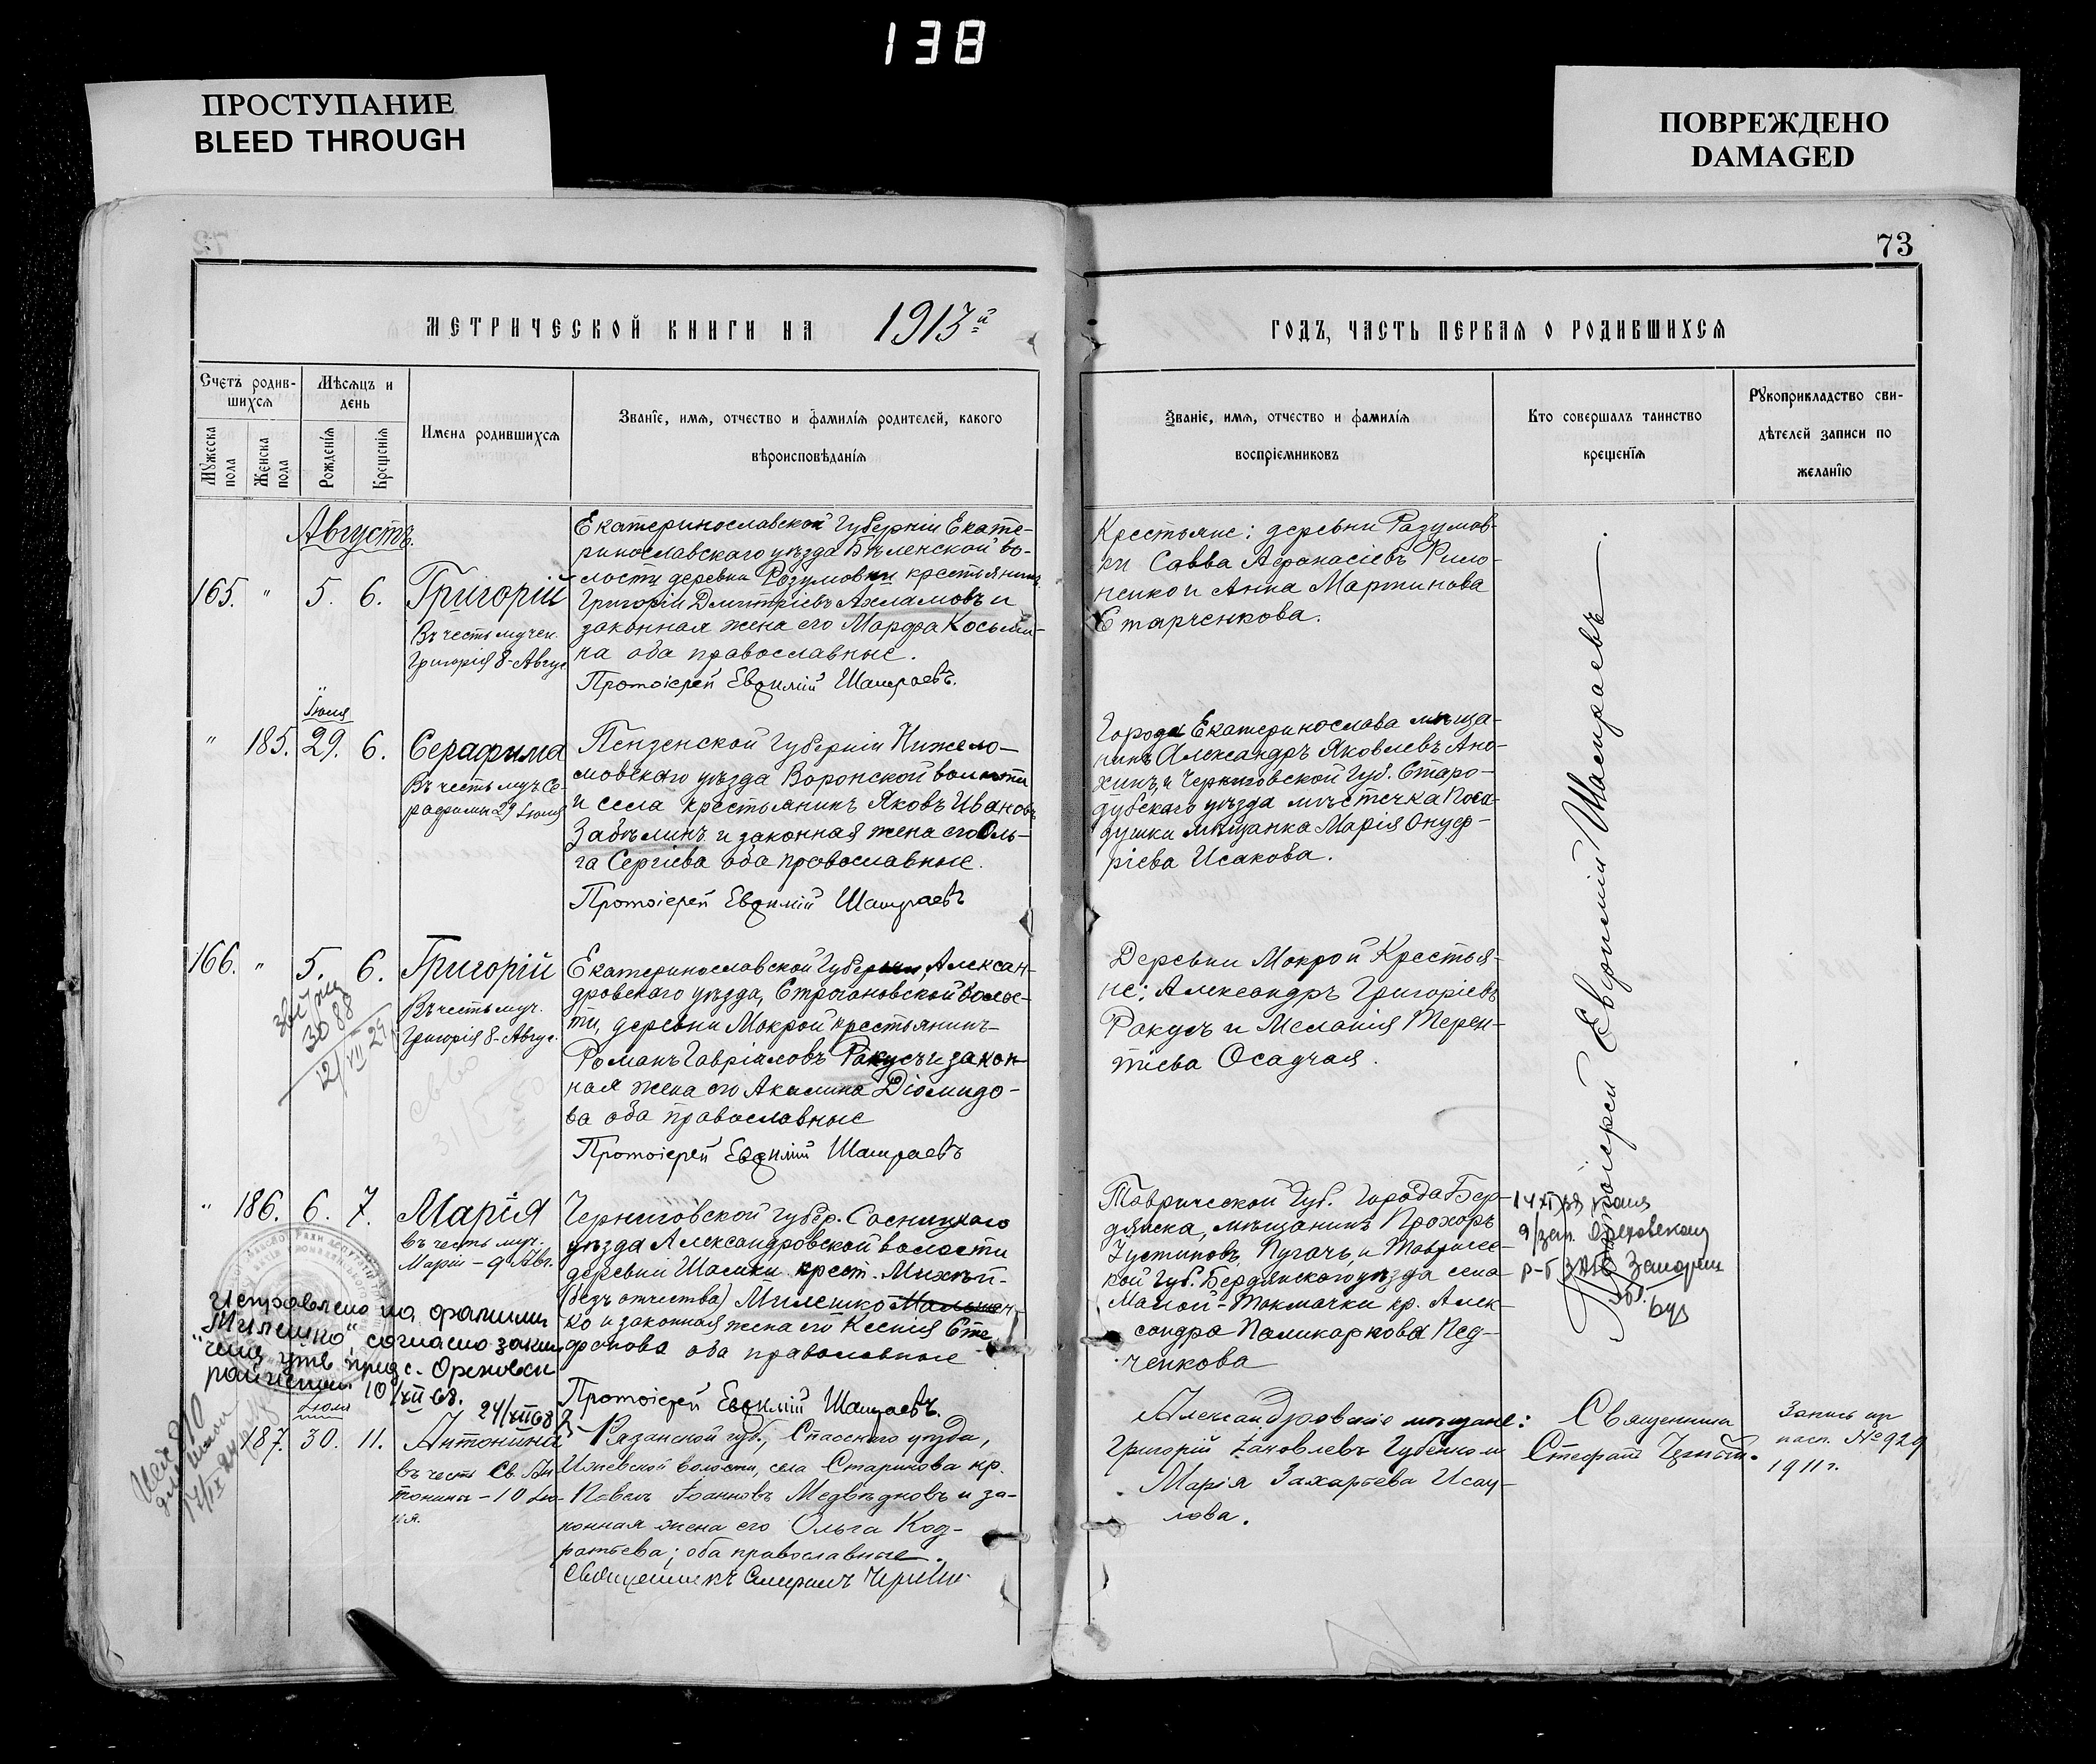 138
ПРОСТУПАНИЕ
BLEED THROUGH
ПОВРЕЖДЕНО
DAMAGED
73
МЕТРИЧЕСКОЙ КНИГИ НА 1913й
ГОДЪ, ЧАСТЬ ПЕРВАЯ О РОДИВШИХСЯ
Счетъ родив-
шихся
Мѣсяцъ и
день
Мужеска
пола
Женска
пола
Рожденїя
Крещенїя
Имена родившихся
Званїе, имя, отчество и фамилїя родителей, какого
вѣроисповѣданїя
Званїе, имя, отчество и фамилїя
воспрїемниковъ
Кто совершалъ таинство
крещенїя
Рукоприкладство сви-
дѣтелей записи по
желанїю
Августъ.
165. " 5. 6. Григорій
Въ честь мучен.
Григорія 8-Авгус.
Екатеринославской Губерніи Екате-
ринославскаго уѣзда Бѣленской во-
лости деревни Розумовки крестьянинъ
Григорій Дмитріевъ Ахламовъ и
законная жена его Марфа Косьми-
на оба православные.
Протоіерей Евфимій Шамраевъ.
Крестьяне: деревни Разумов-
ки Савва Афанасіевъ Фило-
ненко и Анна Мартинова
Старченкова.
Протоіерей Евфимій Шамраевъ
Іюля
" 185. 29. 6. Серафима
Въ честь муч. Се-
рафимы 29 Іюля
Пензенской Губерніи Нижело-
мовскаго уѣзда Воронской волости
и села крестьянинъ Яковъ Ивановъ
Забѣлинъ и законная жена его Оль-
га Сергіева оба православные.
Протоіерей Евфимій Шамраевъ
Города Екатеринослава мѣща-
нинъ Александръ Яковлевъ Ано-
хинъ, и Черниговской Губ. Старо-
дубскаго уѣзда мѣстечка Поса-
душки мѣщанка Марія Онуф-
ріева Исакова.
166. " 5. 6. Григорій
Въ честь муч.
Григорія 8-Авгус.
3088
12/VII 29
Екатеринославской Губерніи, Алексан-
дровскаго уѣзда, Строгановской волос-
ти, деревни Мокрой крестьянинъ
Романъ Гавріиловъ Ракусъ и закон-
ная жена его Акилина Діомидо-
ва оба православные
Протоіерей Евфимій Шамраевъ
Деревни Мокрой Крестья-
не: Александръ Григоріевъ
Ракусъ и Меланія Терен-
тіева Осадчая.
" 186. 6. 7. Марія
въ честь муч.
Маріи - 9 Авг.
Черниговской губер. Сосницкаго
уѣзда Александровской волости
деревни Шаски крест. Михѣй-
(безъ отчества) Милешко
ко и законная жена его Ксенія Сте-
фанова оба православные
Протоіерей Евфимій Шамраевъ.
Таврической Губ. города Бер-
дянска, мѣщанинъ Прохоръ
Іустиновъ Пугачъ, и Тавричес-
кой Губ. Бердянскаго уѣзда села
Малой-Токмачки кр. Алек-
сандра Поликарпова Пед-
ченкова
Исправлено на фамилию
"Милешко", согласно заклю-
чения
10/XII 68.
24/XII 68
Іюля
187. 30. 11. Антонина
въ честь Св. Ан-
тонины - 10 Iю-
ня.
Рязанской губ., Спасскаго уѣзда,
Ижевской волости, села Старикова кр.
Павелъ Іоанновъ Медвѣдновъ и за-
конная жена его Ольга Код-
ратьева; оба православные.
Александровскіе мѣщане:
Григорій Іаковлевъ Губенко и
Марія Захарьева Исау-
лова.
Священникъ
Запись из
пасп. № 929
1911 г.